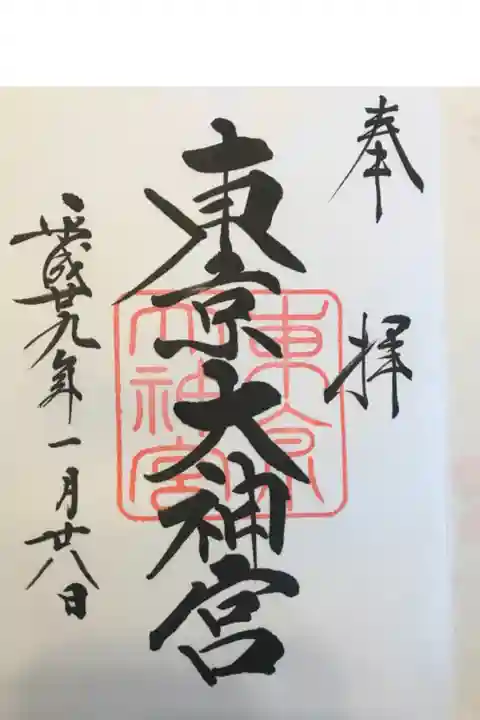 奉拝
東京大神宮
東京大神宮
平成廿九年一月廿八日